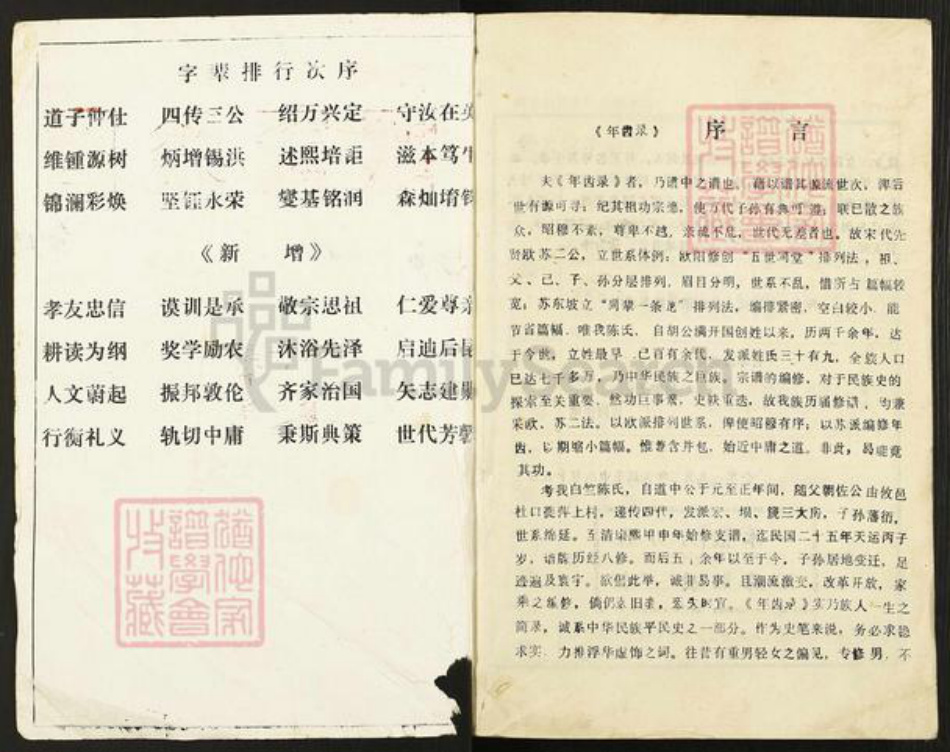 字辈排行次序
道子仲仕 四传三公 绍万兴定 守汝在英
维锺源树 炳增锡洪 述熙培 滋本笃
锦澜彩焕 坚钰永荣 燮基铭润 森灿堉
《新 增》
孝友忠信 谟训是承 敬宗思祖 仁爱尊亲
耕读为纲 奖学励农 沐浴先泽 启迪后昆
人文蔚起 振邦敦伦 齐家治国 矢志建勋
行衡礼义 轨切中庸 秉斯典策 世代芳馨
《年齿录》 序 言
夫《年齿录》者，乃谱中之谱也，藉以谱其源流世次，俾后
世有源可寻；纪其祖功宗德，使万代子孙有典可遵；联已散之族
众，昭穆不紊，尊卑不越，亲疏不乱，世代无差者也。故宋代先
贤欧苏二公，立世系体例；欧阳修创“五世同堂”排列法，祖、
父、己、子、孙分层排列，眉目分明，世系不乱，惜所占篇幅较
宽；苏东坡立“ 一条龙”排列法，编排紧密，空白较小，能
节省篇幅。唯我陈氏，自胡公满开国创姓以来，历两千余年，达
于今世，立姓最早，已百有余代，发派姓氏三十有九，全族人口
已达七千多万，乃中华民族之巨族。宗谱的编修，对于民族史的
探索至关重要，然功巨事繁，史帙重迭，故我族历届修谱，均兼
采欧、苏二法。以欧派排列世系，俾使昭穆有序；以苏派编修年
齿，以期缩小篇幅。惟兼含并包，始近中庸之道。非此，曷能竟
其功。
考我白竺陈氏，自道中公于元至正年间，随父朝佐公由攸邑
杜口徙萍上村，递传四代，发派宏、埙、篪三大房，子孙蕃衍，
世系绵延。至清康熙甲申年始修支谱，迄民国二十五年天运丙子
岁，谱牒历经八修。而后五 余年以至于今，子孙居地变迁，足
迹遍及寰宇。欲倡此举，诚非易事。且潮流激变，改革开放，家
乘之编修，倘仍袭旧章，恐失时宜。《年齿录》实乃族人一生之
简录，诚系中华民族平民史之一部分。作为史笔来说，务必求稳
求实，力摒浮华虚饰之词。往昔有重男轻女之偏见，专修男，不
FamilySearch